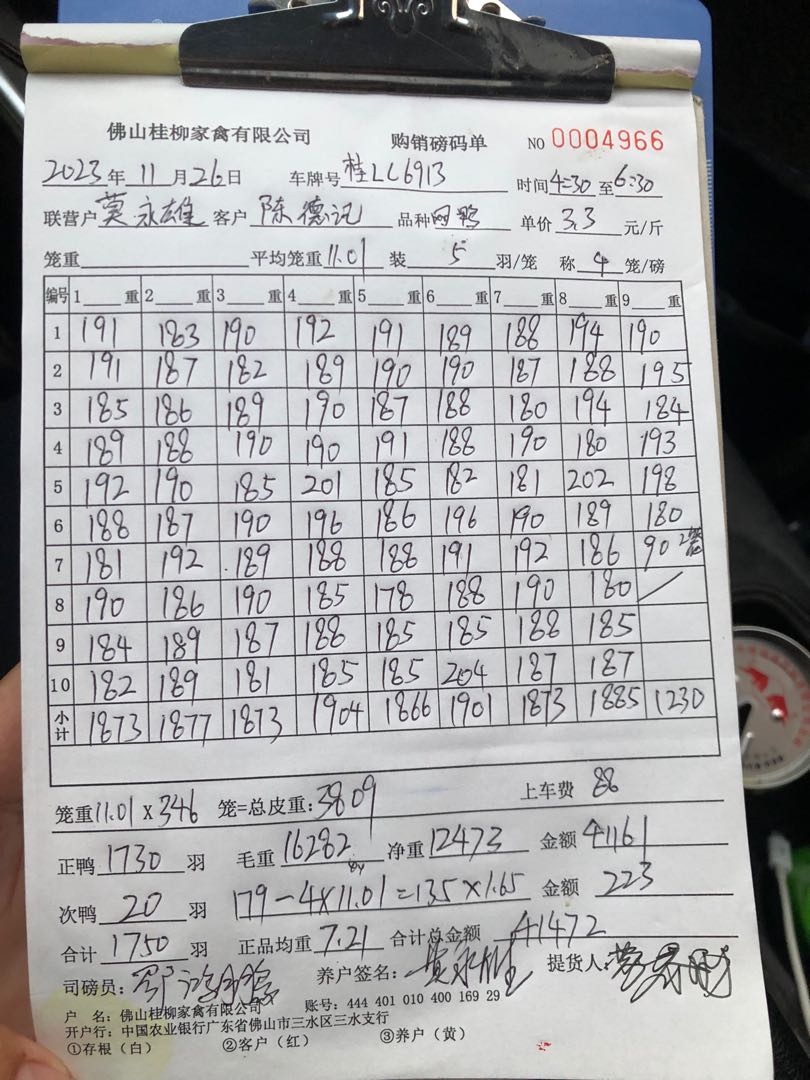 佛山桂柳家禽有限公司 购销磅码单 NO 0004966
2023年11月26日 车牌号桂LC6913 时间4:30至6:30
联营户莫永雄 客户陈德记 品种网鸭 单价3.3元/斤
笼重 平均笼重11.01 装5羽/笼 称4笼/磅
编号 1 重 2 重 3 重 4 重 5 重 6 重 7 重 8 重 9 重
1 191 183 190 192 191 189 188 194 190
2 191 187 182 189 190 190 187 188 195
3 185 186 189 190 187 188 180 194 184
4 189 188 190 190 191 188 190 180 193
5 192 190 185 201 185 182 181 202 198
6 188 187 190 196 186 196 190 189 180
7 181 192 189 188 188 191 192 186 90 2笼
8 190 186 190 185 178 188 190 180
9 184 189 187 188 185 185 188 185
10 182 189 181 185 185 204 187 187
小计 1873 1877 1873 1904 1866 1901 1873 1885 1230
笼重11.01×346 笼=总皮重:3809 上车费 88
正鸭1730羽 毛重16282 净重12473 金额41161
次鸭20羽 179-4×11.01=135×1.65 金额223
合计1750羽 正品均重7.21 合计总金额41472
司磅员: 养户签名:莫永雄 提货人:
户 名:佛山桂柳家禽有限公司 账号:444 401 010 400 169 29
开户行:中国农业银行广东省佛山市三水区三水支行
①存根(白) ②客户(红) ③养户(黄)